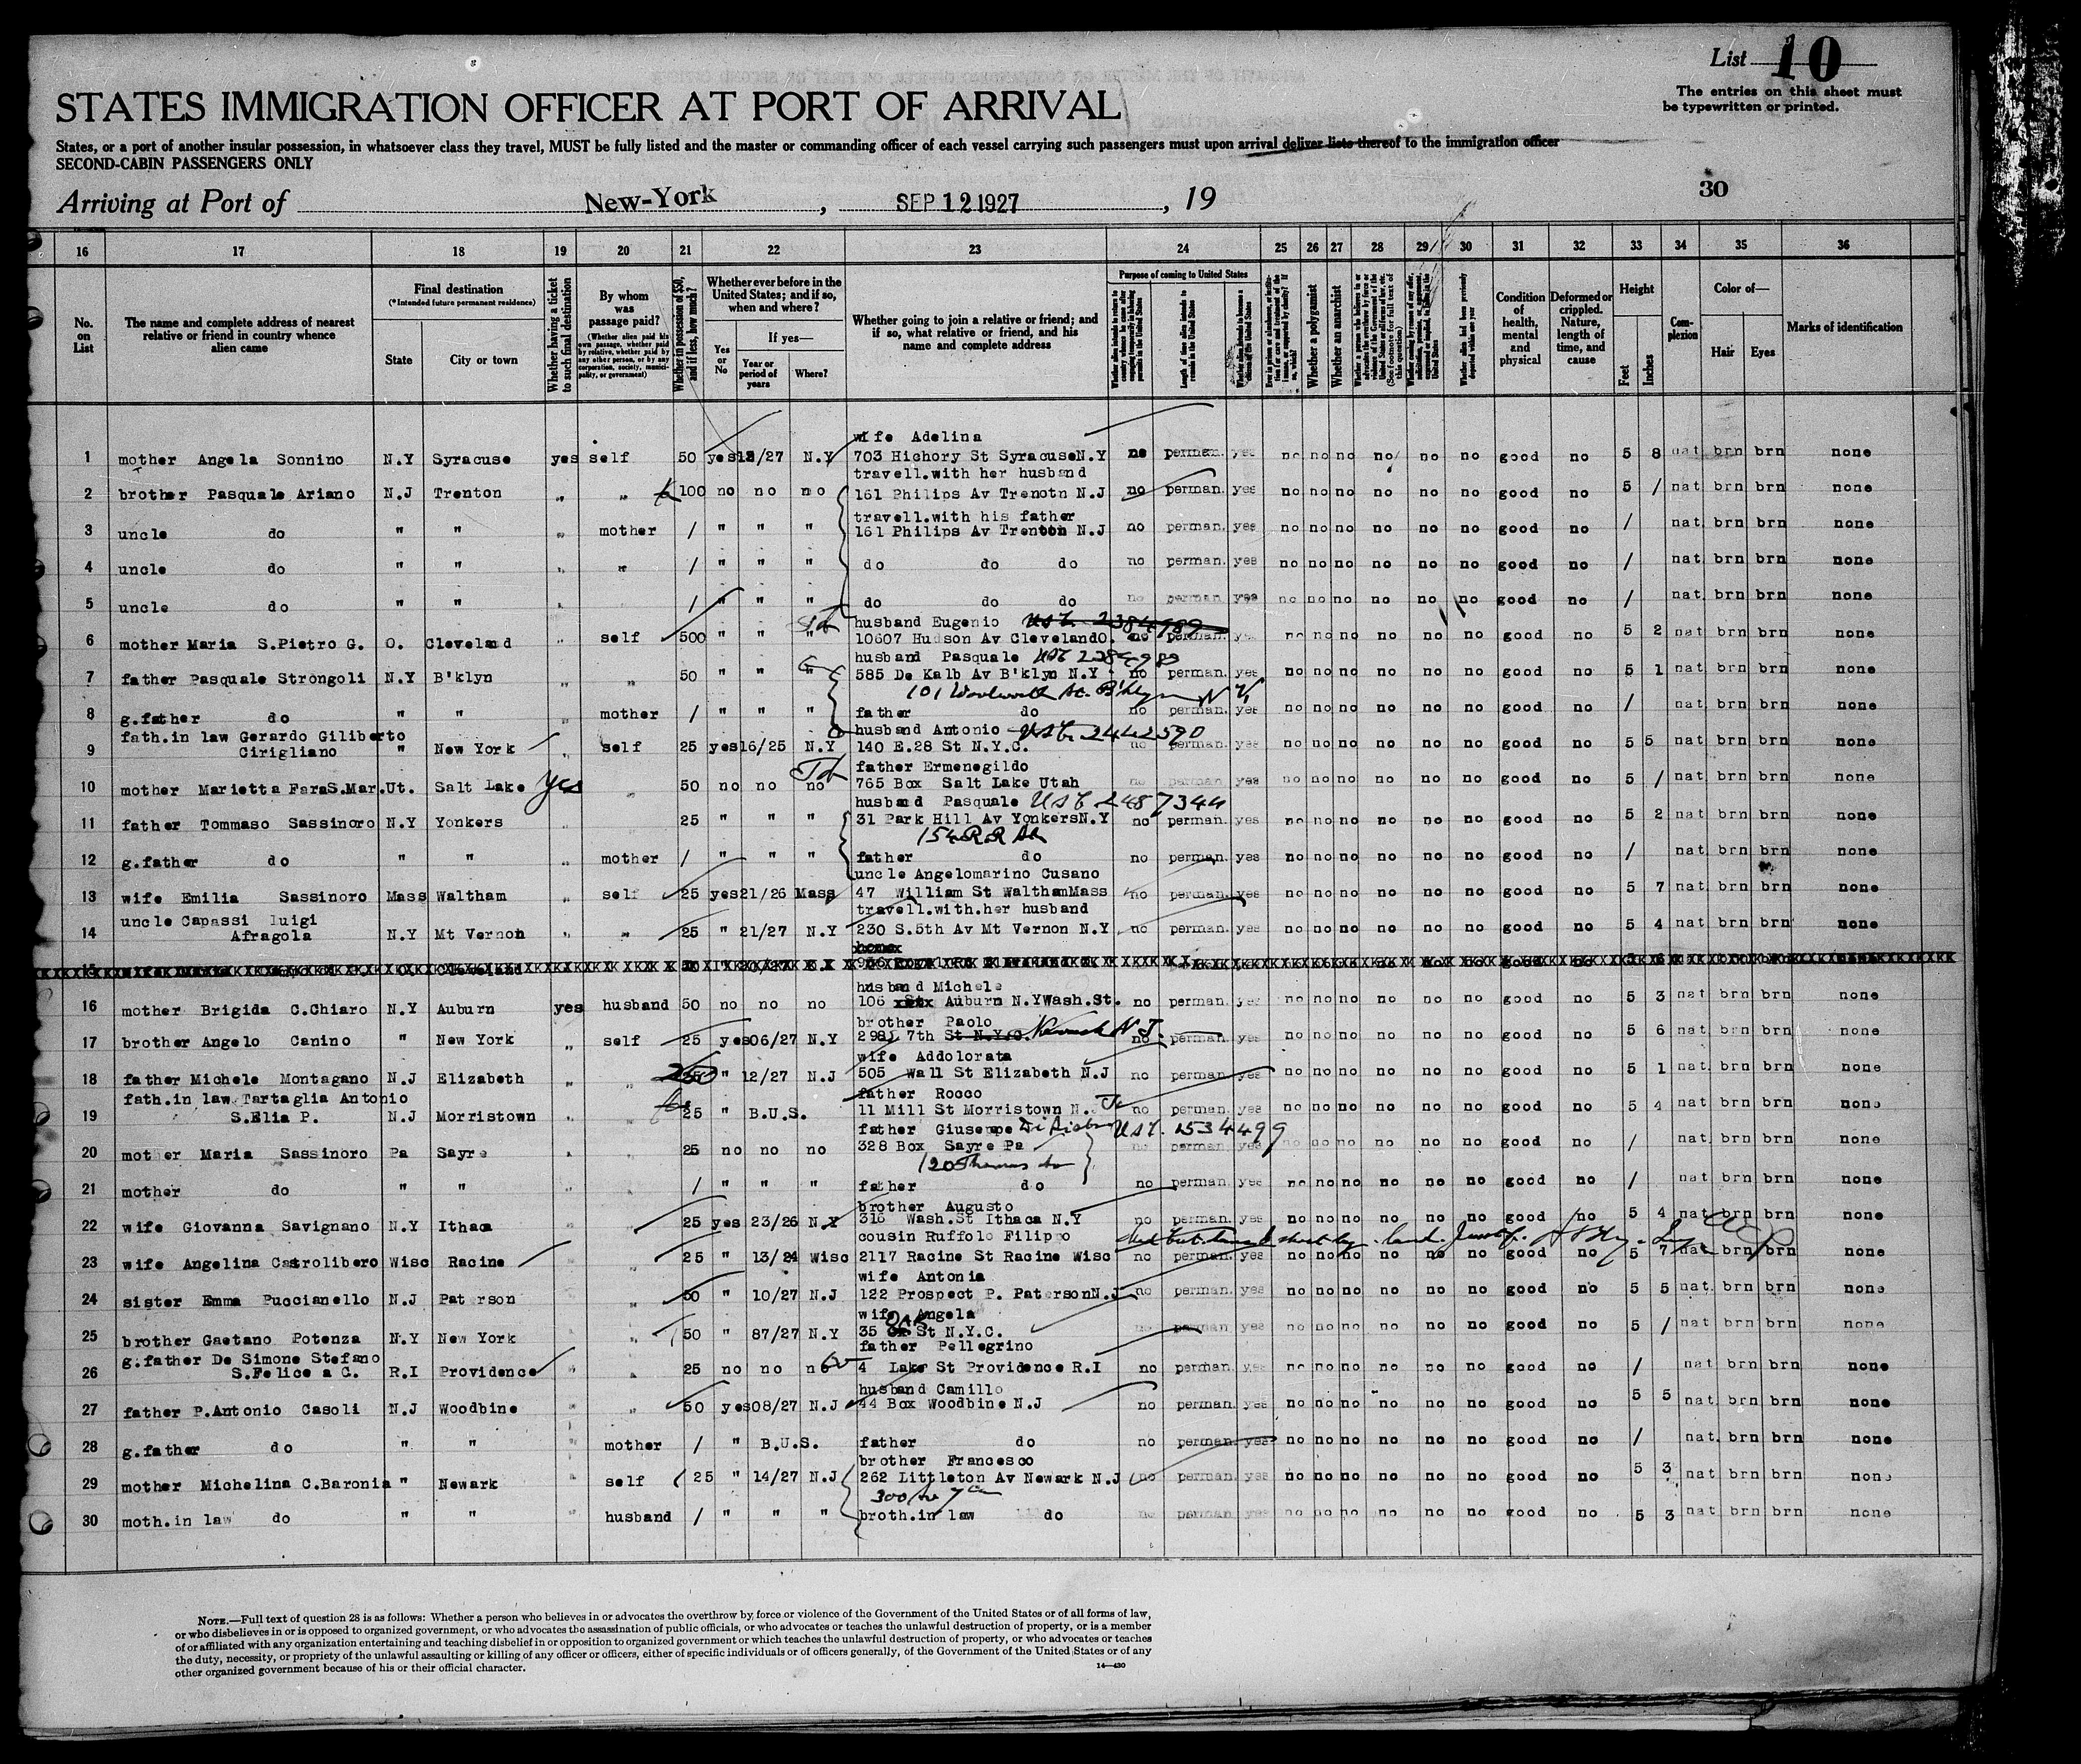 List 10
The entries on this sheet must
be typewritten or printed.
STATES IMMIGRATION OFFICER AT PORT OF ARRIVAL
States, or a port of another insular possession, in whatsoever class they travel, MUST be fully listed and the master or commanding officer of each vessel carrying such passengers must upon arrival deliver lists thereof to the immigration officer
SECOND-CABIN PASSENGERS ONLY
Arriving at Port of New-York , SEP 12 1927 , 19
30
16 17 18 19 20 21 22 23 24 25 26 27 28 29 30 31 32 33 34 35 36
No. on List
The name and complete address of nearest relative or friend in country whence alien came
Final destination
(*Intended future permanent residence)
State
City or town
Whether having a ticket to such final destination
By whom was passage paid?
(Whether alien paid his own passage, whether paid by relative, whether paid by any other person, or by any corporation, society, municipality, or government)
Whether in possession of $50, and if less, how much?
Whether ever before in the United States; and if so, when and where?
Yes or No
If yes—
Year or period of years
Where?
Whether going to join a relative or friend; and if so, what relative or friend, and his name and complete address
Purpose of coming to United States
Length of time alien intends to remain in the United States
Whether a polygamist
Whether an anarchist
Condition of health, mental and physical
Deformed or crippled. Nature, length of time, and cause
Height
Feet
Inches
Complexion
Color of—
Hair
Eyes
Marks of identification
wife Adelina
1 mother Angela Sonnino N.Y Syracuse yes self 50 yes 13/27 N.Y 703 Hichory St SyracuseN.Y no perman. yes no no no no no no good no 5 8 nat brn brn none
travell.with her husband
2 brother Pasquale Ariano N.J Trenton " " 100 no no no 161 Philips Av Trenotn N.J no perman. yes no no no no no no good no 5 / nat brn brn none
travell.with his father
3 uncle do " " " mother / " " " 161 Philips Av Trenton N.J no perman. yes no no no no no no good no / nat brn brn none
4 uncle do " " " " / " " " do do do no perman. yes no no no no no no good no / nat brn brn none
5 uncle do " " " / " " " do do do no perman. yes no no no no no no good no / nat brn brn none
husband Eugenio
6 mother Maria S.Pietro G. O. Cleveland " self 500 " " " 10607 Hudson Av ClevelandO. no perman. yes no no no no no no good no 5 2 nat brn brn none
husband Pasquale
7 father Pasquale Strongoli N.Y B'klyn " " 50 " " " 585 De Kalb Av B'klyn N.Y no perman. yes no no no no no no good no 5 1 nat brn brn none
8 g.father do " " " mother / " " " father do no perman. yes no no no no no no good no / nat brn brn none
fath.in law Gerardo Giliberto husband Antonio USC 2442590
9 Cirigliano " New York " self 25 yes 16/25 N.Y 140 E.28 St N.Y.C. no perman. yes no no no no no no good no 5 5 nat brn brn none
father Ermenegildo
10 mother Marietta FaraS.Mar. Ut. Salt Lake yes " 50 no no no 765 Box Salt Lake Utah no perman yes no no no no no no good no 5 / nat brn brn none
husband Pasquale USC 2487344
11 father Tommaso Sassinoro N.Y Yonkers 25 " " " 31 Park Hill Av YonkersN.Y no perman. yes no no no no no no good no 5 2 nat brn brn none
12 g.father do " " " mother / " " " father do no perman. yes no no no no no no good no / nat brn brn none
uncle Angelomarino Cusano
13 wife Emilia Sassinoro Mass Waltham " self 25 yes 21/26 Mass 47 William St WalthamMass no perman. yes no no no no no no good no 5 7 nat brn brn none
uncle Capassi luigi travell.with.her husband
14 Afragola N.Y Mt Vernon " " 25 " 21/27 N.Y 230 S.5th Av Mt Vernon N.Y no perman. yes no no no no no no good no 5 4 nat brn brn none
15
husband Michele
16 mother Brigida C.Chiaro N.Y Auburn yes husband 50 no no no 106 Auburn N.YWash.St. no perman. yes no no no no no no good no 5 3 nat brn brn none
brother Paolo
17 brother Angelo Canino " New York " self 25 yes 06/27 N.Y 298 7th St N.Y.C. Newark N.J. no perman. yes no no no no no no good no 5 6 nat brn brn none
wife Addolorata
18 father Michele Montagano N.J Elizabeth " " " 12/27 N.J 505 Wall St Elizabeth N.J no perman. yes no no no no no no good no 5 1 nat brn brn none
fath.in law Tartaglia Antonio father Rocco
19 S.Elia P. N.J Morristown " 25 " B.U.S. 11 Mill St Morristown N.J no perman. yes no no no no no no good no 5 4 nat brn brn none
father Giuseppe
20 mother Maria Sassinoro Pa Sayre " " 25 no no no 328 Box Sayre Pa no perman. yes no no no no no no good no / nat brn brn none
21 mother do " " / " " " father do no perman. yes no no no no no no good no / nat brn brn none
brother Augusto
22 wife Giovanna Savignano N.Y Ithaca " 25 yes 23/26 N.Y 316 Wash.St Ithaca N.Y no perman. yes no no no no no no good no 5 4 nat brn brn none
cousin Ruffolo Filippo
23 wife Angelina Castrolibero Wisc Racine " 25 " 13/24 Wisc 2117 Racine St Racine Wisc no perman. yes no no no no no no good no 5 7 nat brn brn none
wife Antonia
24 sister Emma Puccianello N.J Paterson " 50 " 10/27 N.J 122 Prospect P. PatersonN.J no perman. yes no no no no no no good no 5 5 nat brn brn none
wife Angela
25 brother Gaetano Potenza N.Y New York " 50 " 87/27 N.Y 35 St N.Y.C. no perman yes no no no no no no good no 5 / nat brn brn none
g.father De Simone Stefano father Pellegrino
26 S.Felice a C. R.I Providence " 25 no no no 4 Lake St Providence R.I no perman. yes no no no no no no good no / nat brn brn none
husband Camillo
27 father P.Antonio Casoli N.J Woodbine " " 50 yes 08/27 N.J 44 Box Woodbine N.J no perman. yes no no no no no no good no 5 5 nat brn brn none
28 g.father do " " " mother / " B.U.S. father do no perman. yes no no no no no no good no / nat brn brn none
brother Francesco
29 mother Michelina C.Baronia " Newark " self 25 " 14/27 N.J 262 Littleton Av Newark N.J no perman. yes no no no no no no good no 5 3 nat brn brn none
30 moth.in law do " " " husband / " " " broth.in law do no perman yes no no no no no no good no 5 3 nat brn brn none
NOTE.—Full text of question 28 is as follows: Whether a person who believes in or advocates the overthrow by force or violence of the Government of the United States or of all forms of law,
or who disbelieves in or is opposed to organized government, or who advocates the assassination of public officials, or who advocates or teaches the unlawful destruction of property, or is a member
of or affiliated with any organization entertaining and teaching disbelief in or opposition to organized government or which teaches the unlawful destruction of property, or who advocates or teaches
the duty, necessity, or propriety of the unlawful assaulting or killing of any officer or officers, either of specific individuals or of officers generally, of the Government of the United States or of any
other organized government because of his or their official character.
14—430